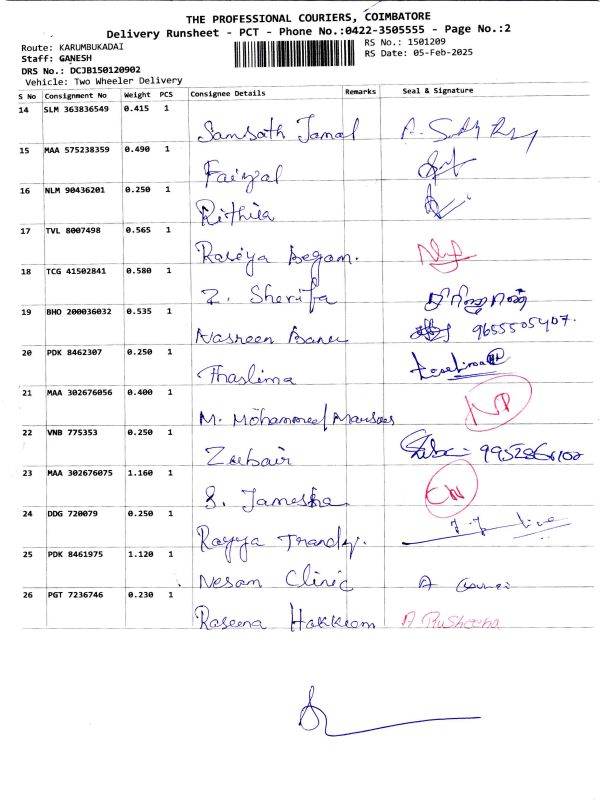 THE PROFESSIONAL COURIERS, COIMBATORE
Delivery Runsheet - PCT - Phone No.:0422-3505555 - Page No.:2
Route: KARUMBUKADAI
RS No.: 1501209
Staff: GANESH
RS Date: 05-Feb-2025
DRS No.: DCJB150120902
Vehicle: Two Wheeler Delivery
S No Consignment No Weight PCS Consignee Details Remarks Seal & Signature
14 SLM 363836549 0.415 1
Samsath Jamal
15 MAA 575238359 0.490 1
Faizal
16 NLM 90436201 0.250 1
Rithika
17 TVL 8007498 0.565 1
Rasiya Begam.
18 TCG 41502841 0.580 1
Z. Sherifa
19 BHO 200036032 0.535 1
Nasreen Banu 9655505407.
20 PDK 8462307 0.250 1
Thaslima
21 MAA 302676056 0.400 1
M. Mohammed NP
22 VNB 775353 0.250 1
Zubair
23 MAA 302676075 1.160 1
S.
24 DDG 720079 0.250 1
25 PDK 8461975 1.120 1
Nesam Clinic
26 PGT 7236746 0.230 1
Raseena Hakkeem A Rusheena